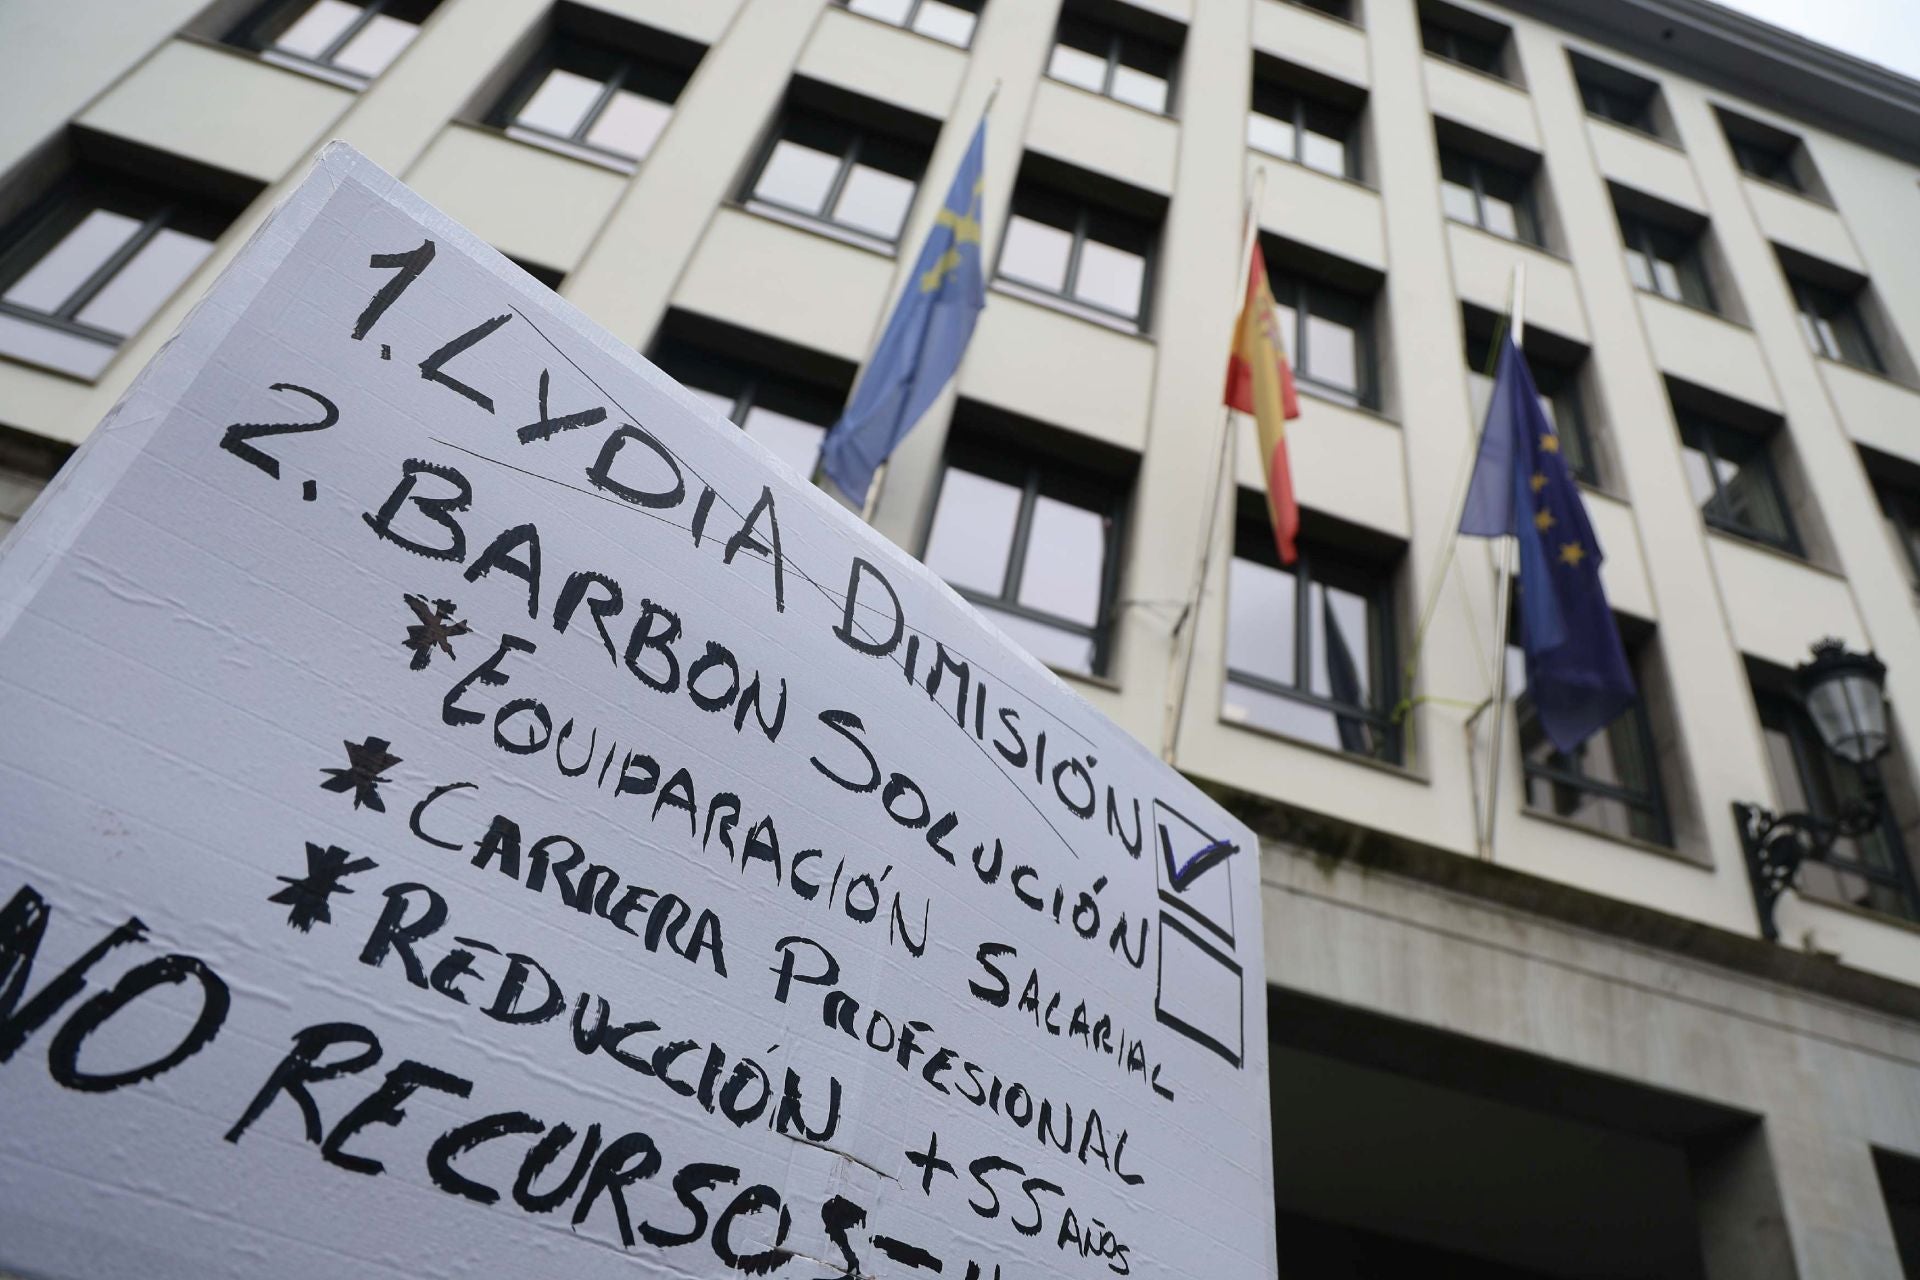 1. LYDIA DIMISIÓN
2. BARBON SOLUCIÓN
* EQUIPARACIÓN SALARIAL
* CARRERA PROFESIONAL
* REDUCCIÓN +55 AÑOS
NO RECURSOS-